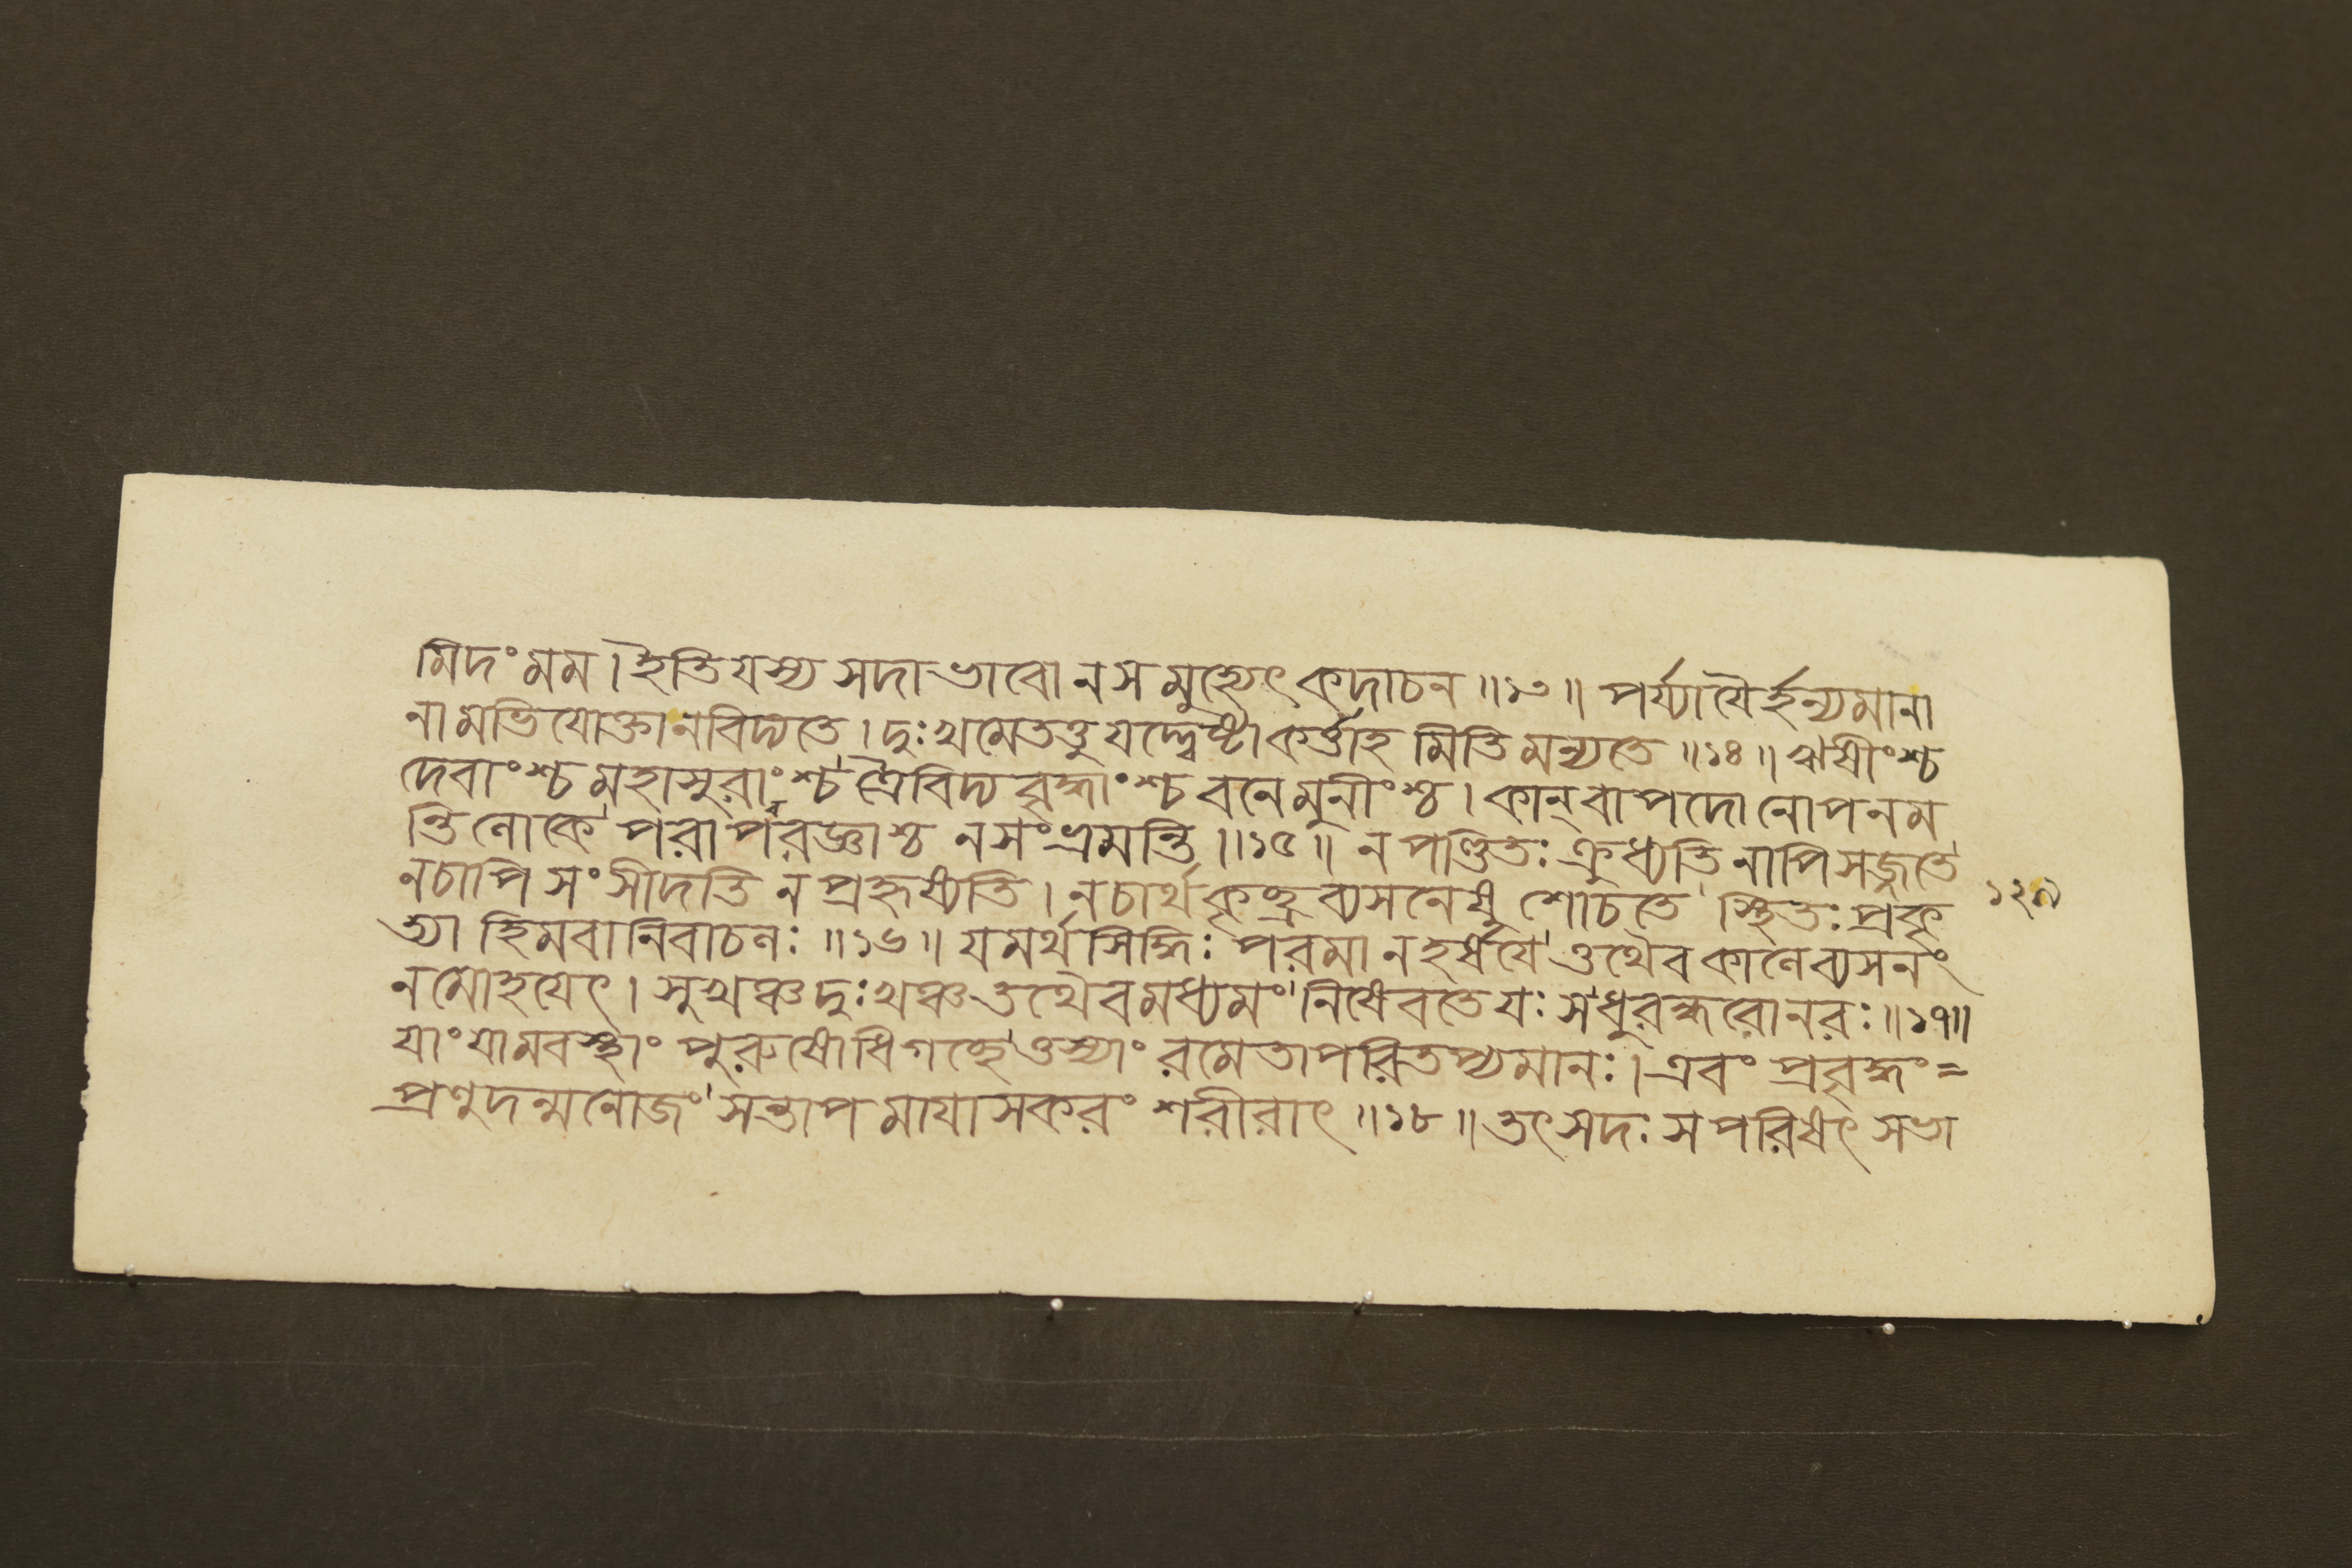 মিদং মম। ইতি যস্য সদা ভাবো ন স মুহ্যেৎ কদাচন॥১৩॥ পর্য্যায়ৈর্হন্যমানা
নামভিযোক্তা ন বিদ্যতে। দুঃখমেতত্তু যদ্দ্বেষ্টা কর্ত্তাহ মিতি মন্যতে॥১৪॥ ঋষীংশ্চ
দেবাংশ্চ মহাসুরাংশ্চ ত্রৈবিদ্য বৃদ্ধাংশ্চ বনে মুনীংশ্চ। কান্ বাপদো নোপনম
ন্তি লোকে পরাপরজ্ঞাশ্চ ন সংভ্রমন্তি॥১৫॥ ন পণ্ডিতঃ ক্রুধ্যতি নাপি সজ্জতে
ন চাপি সংসীদতি ন প্রহৃষ্যতি। ন চার্থকৃচ্ছ্র ব্যসনেষু শোচতে স্থিতঃ প্রকৃ
ত্যা হিমবানিবাচলঃ॥১৬॥ যমর্থসিদ্ধিঃ পরমা ন হর্ষয়ে ত্তথৈব কালে ব্যসনং
ন মোহয়েৎ। সুখঞ্চ দুঃখঞ্চ তথৈব মধ্যমং নিষেবতে যঃ স ধুরন্ধরো নরঃ॥১৭॥
যাং যামবস্থাং পুরুষোধিগচ্ছে ত্তস্যাং রমেতাপরিতপ্যমানঃ। এবং প্রবৃদ্ধং=
প্রণুদন্মনোজং সন্তাপ মায়াসকরং শরীরাৎ॥১৮॥ তৎ সদঃ স পরিষৎ সভা
১২৯